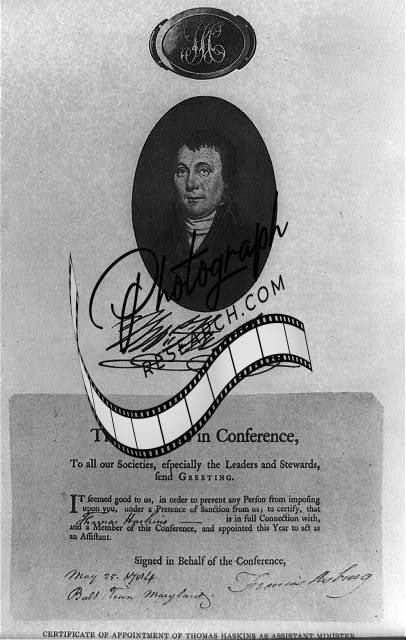 Photograph
RESEARCH.COM
in Conference,
To all our Societies, eſpecially the Leaders and Stewards,
ſend GREETING.
IT ſeemed good to us, in order to prevent any Perſon from impoſing
upon you, under a Pretence of Sanction from us; to certify, that
Thomas Haskins is in full Connection with,
and a Member of this Conference, and appointed this Year to act as
an Aſſiſtant.
Signed in Behalf of the Conference,
May 25. 1784
Balt Town Maryland.
Francis Asbury
CERTIFICATE OF APPOINTMENT OF THOMAS HASKINS AS ASSISTANT MINISTER